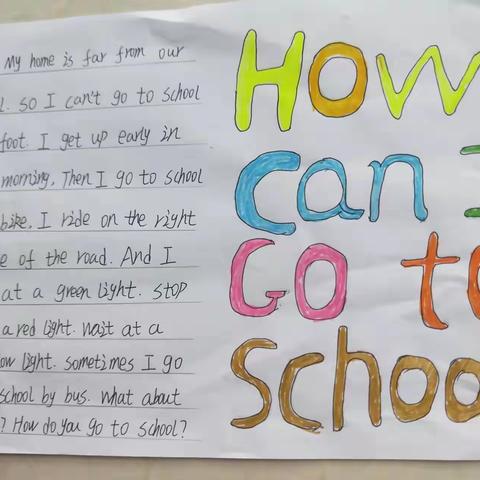 My home is far from our
l. so I can't go to school
foot. I get up early in
morning. Then I go to school
bike. I ride on the right
e of the road. And I
at a green light. stop
a red light. wait at a
ow light. sometimes I go
school by bus. what about
? How do you go to school?
How
Can I
Go to
Schoo